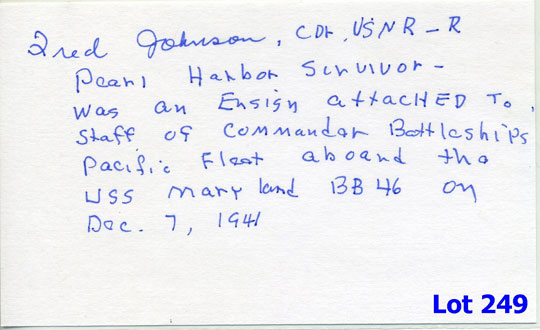 Fred Johnson, CDR, USNR-R
Pearl Harbor Survivor -
Was an Ensign attached to
staff of Commander Battleships
Pacific Fleet aboard the
USS Maryland BB 46 on
Dec. 7, 1941
Lot 249